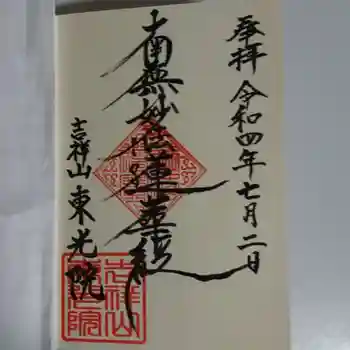 奉拝 令和四年七月二日
南無妙法蓮華経
吉祥山 東光院
吉祥山東光院